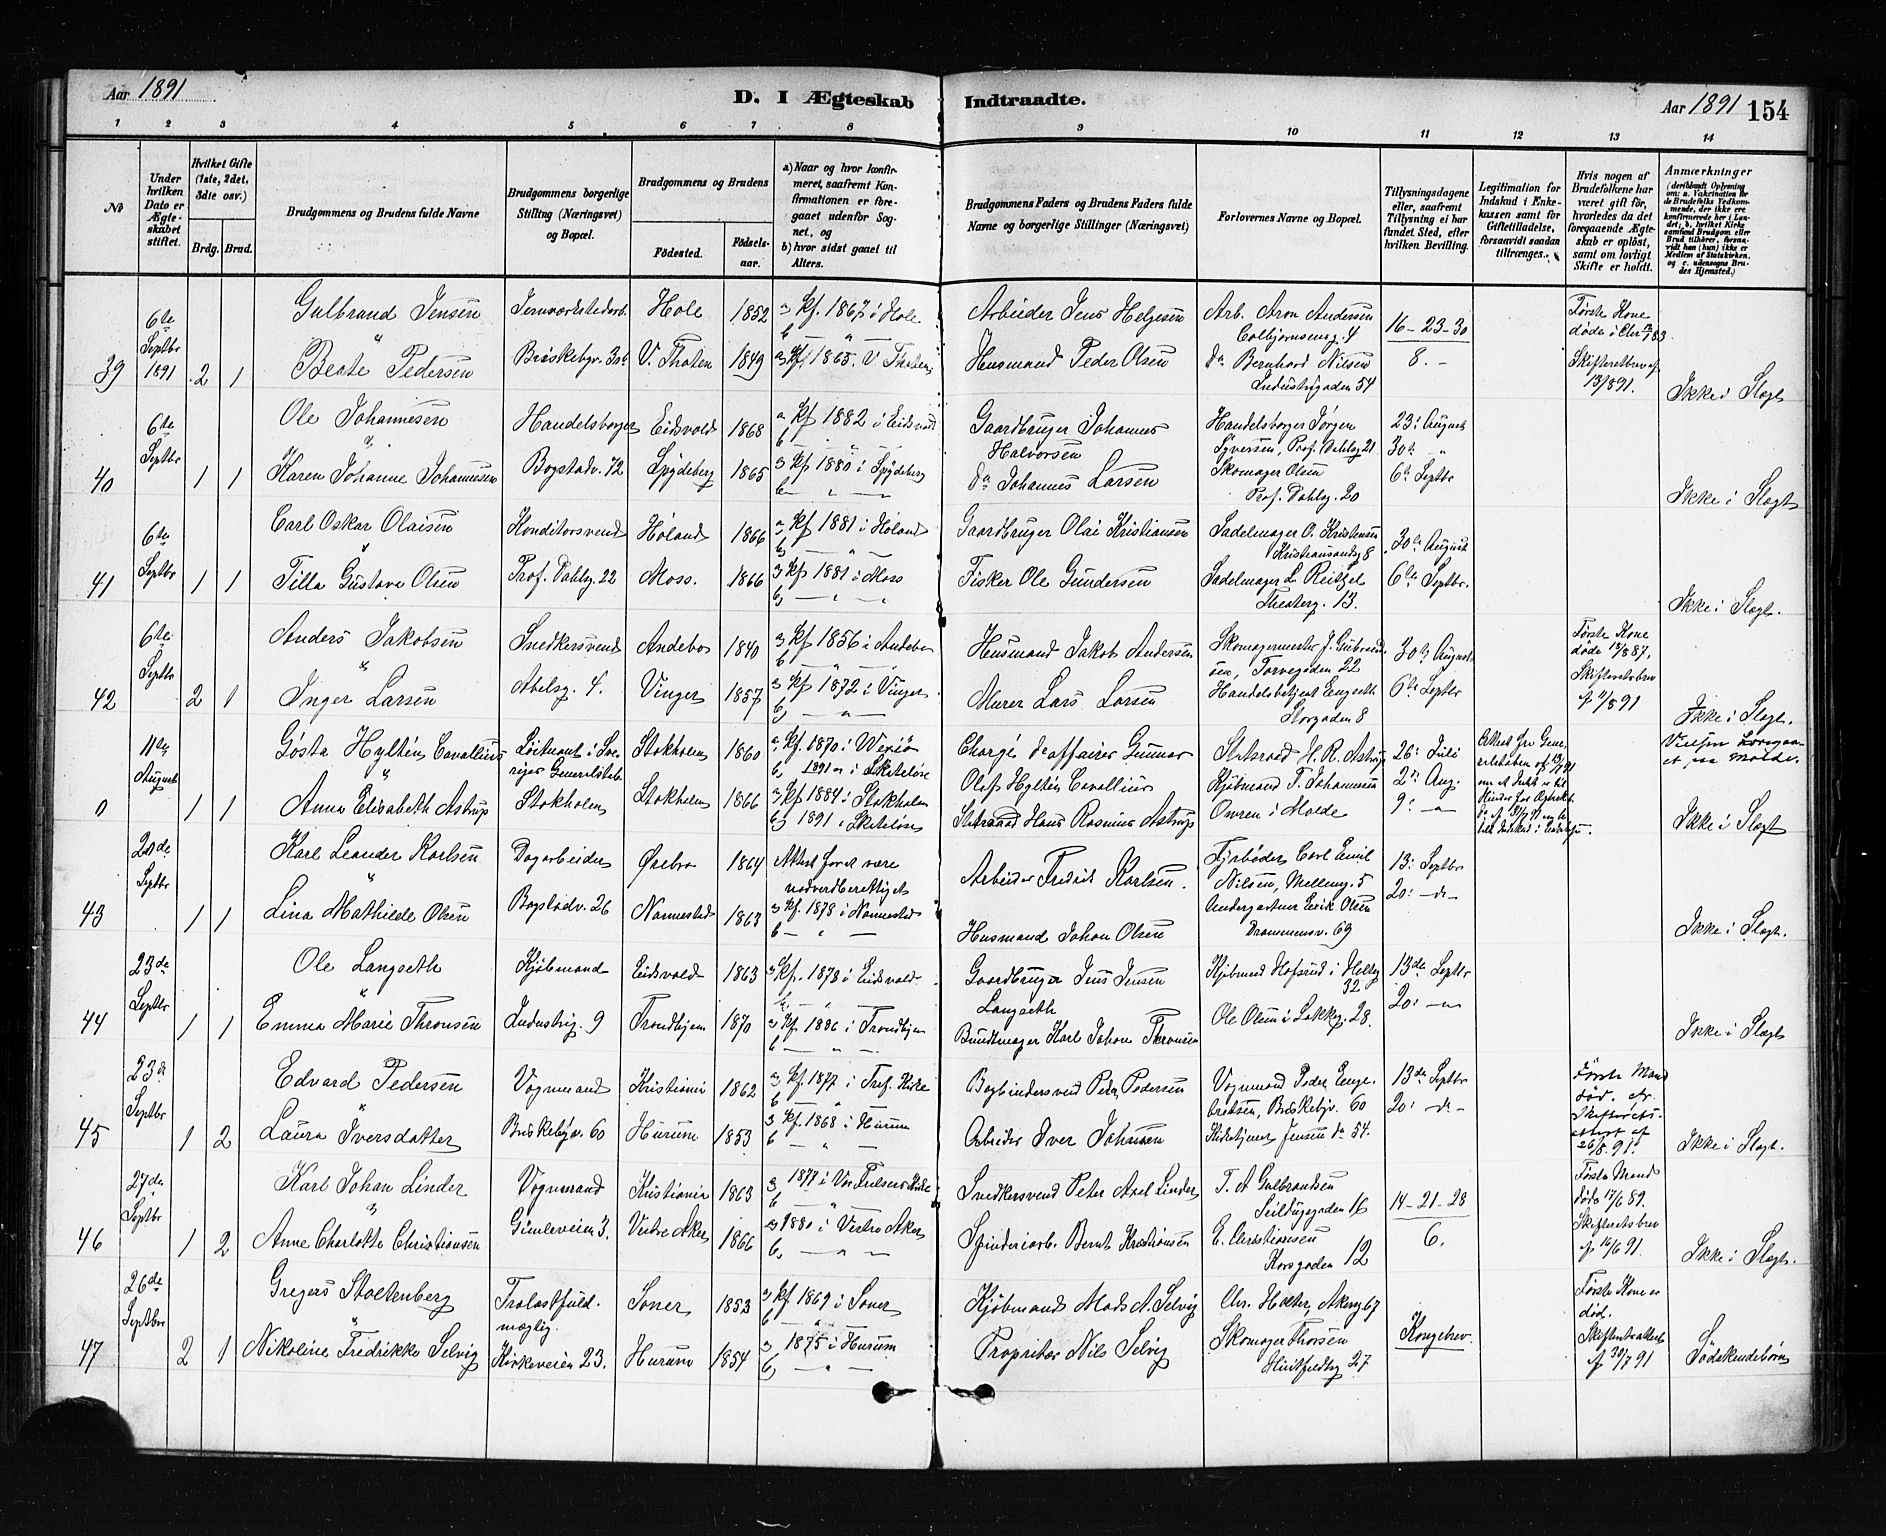 Aar 1891
D. I Ægteskab Indtraadte.
Aar 1891 154
1 2 3 4 5 6 7 8 9 10 11 12 13 14
No
Under hvilken Dato er Ægteskabet stiftet.
Hvilket Gifte (1ste, 2det, 3die osv.)
Brdg. Brud.
Brudgommens og Brudens fulde Navne
Brudgommens borgerlige Stilling (Næringsvei) og Bopæl.
Brudgommens og Brudens
Fødested. Fødselsaar.
a) Naar og hvor konfirmeret, saafremt Konfirmationen er foregaaet udenfor Sognet, og
b) hvor sidst gaaet til Alters.
Brudgommens Faders og Brudens Faders fulde Navne og borgerlige Stillinger (Næringsvei)
Forlovernes Navne og Bopæl.
Tillysningsdagene eller, saafremt Tillysning ei har fundet Sted, efter hvilken Bevilling.
Legitimation for Indskud i Enkekassen samt for Giftetilladelse, forsaavidt saadan tiltrænges.
Hvis nogen af Brudefolkene har været gift før, hvorledes da det foregaaende Ægteskab er opløst, samt om lovligt Skifte er holdt.
Anmærkninger
39 6te Septbr 1891 2 1
Gulbrand Jensen Hole 1852 a kf. 1867 i Hole Arbeider Jens Helgesen Arb. Aron Andersen 16-23-30 Første Kone
Beate Pedersen V. Thoten 1849 a kf. 1865. V. Thoten Husmand Peder Olsen do Bernhard Nilsen 8. -
Industrigaden 54
Ikke i Slegt
40 6te Septbr 1 1
Ole Johannesen Handelsborger Eidsvold 1868 a kf 1882 i Eidsvold Gaardbruger Johannes Halvorsen Handelsborger Jørgen Syversen, Prof. Dahlsg 21 23: August
30te "
Karen Johanne Johannesen Bogstadv. 72 Spydeberg 1865 a kf 1880 i Spydeberg do Johannes Larsen Skomager Olsen 6te Septbr
Prof. Dahlsg. 20
Ikke i Slegt
41 6te Septbr 1 1
Carl Oskar Olaisen Konditorsvend Høland 1866 a kf 1881 i Høland Gaardbruger Olai Kristiansen Sadelmager O. Kristensen 30te August
Kristiansandsg 8
Tilla Gustava Olsen Prof. Dahlsg. 22 Moss. 1866 a kf 1881 i Moss Fisker Ole Gundersen Sadelmager L. Reitzel 6te Septbr.
Theaterg. 13.
Ikke i Slegt.
42 6te Septbr 2 1
Anders Jakobsen Snedkersvend Andebo 1840 a kf 1856 i Andebo Husmand Jakob Andersen Skomagermester J. Gulbrandsen, Torvegaden 22 30te August Første Kone
Inger Larsen Abelsg. 4. Vinger 1857 a kf 1872 i Vinger Murer Lars Larsen Handelsbetjent Engseth 6te Septbr Skifteretsbrev
Storgaden 8
Ikke i Slegt.
0 11te August 1 1
Gösta Hyltén Cavallius Løitnant i Sveriges Generalstab Stokholm 1860 a kf. 1870 i Wexiö Chargé d'affairer Gunnar Olof Hyltén Cavallius Statsraad H. R. Astrup 26: Juli
b 1891 i Skateløse
Anna Elisabeth Astrup Stokholm Stokholm 1866 a kf 1884 i Stokholm Statsraad Hans Rasmus Astrup Kjøbmand F. Johannesen 2: Aug.
b 1891 i Skateløse Owren i Molde 9: "
Vielsen foregaaet paa Molde.
Ikke i Slegt
43 20de Septbr 1 1
Karl Leander Karlsen Dagarbeider Ørebro 1864 Attest for at være nadverdberettiget Arbeider Fredrik Karlsen. Fyrbøder Carl Emil Nilsen, Melleng. 5 13: Septbr
20: - d -
Lina Mathilde Olsen Bogstadv. 26 Nannestad 1863 a kf. 1878 i Nannestad Husmand Johan Olsen Undergartner Eirik Olsen
Drammensv. 69
Ikke i Slegt.
44 23de Septbr 1 1
Ole Langseth Kjøbmand Eidsvold 1863 a kf. 1878 i Eidsvold Gaardbruger Jens Jensen Langseth Kjøbmd Hofsrud i Helleg 32 13de Septbr
20:
Emma Marie Thronsen Industrig. 9 Trondhjem 1870 a kf. 1886 i Trondhjem Bundtmager Karl Johan Thronsen Ole Olsen i Lakkeg. 28.
Ikke i Slegt
45 23de Septbr 1 2
Edvard Pedersen Vognmand Kristiania 1862 a kf. 1877 i Tref. Kirke Bogbindersvend Peder Pedersen Vognmand Peder Engebretsen, Briskebyv. 60 13de Septbr Første Mand død.
20: - d -
Laura Iversdatter Briskebyv. 60 Hurum 1853 a kf. 1868 i Hurum Arbeider Iver Johnsen Kirketjener Jensen do 54. 26/8.91.
Ikke i Slegt.
46 27de Septbr 1 2
Karl Johan Linder Vognmand Kristiania 1863 a 1877 i Vor Frelsers Kirke Snedkersvend Peter Axel Linder T. A Gulbrandsen 14-21-28 Første Mand
Seildugsgaden 16
Anne Charlotte Christiansen Gimleveien 3. Vestre Aker 1866 a 1880 i Vestre Aker Spinderiarb. Bernt Kristiansen E. Christiansen 6. Skifteretsbrev af 16/6 91.
Korsgaden 12
Ikke i Slegt.
47 26de Septbr 2 1
Gregers Stoltenberg Trælastfuldmægtig. Soner 1853 a kf 1869 i Soner Kjøbmand Mads A. Selvig Chr. Holter, Akersg 67 Kongebrev. Første Kone er død.
Nikoline Fredrikke Selvig Kirkeveien 23. Hurum 1854 a 1875 i Hurum Proprietær Nils Selvig Skomager Thorsen af 30/7 91
27
Sødskendebørn